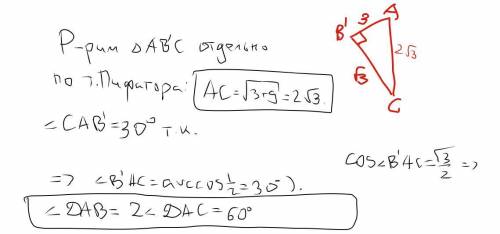 Р-рим △AB'C отдельно
по т.Пифагора: AC=√3+9=2√3.
∠CAB'=30° т.к.
cos∠B'AC=√3/2 =>
=> ∠B'AC=arccos 1/2=30°).
∠DAB=2∠DAC=60°
B' 3 A
2√3
√3
C